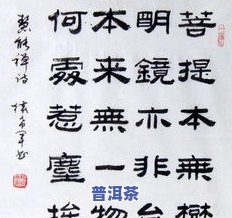 菩提本無樹
明鏡亦非台
本来無一物
何處惹塵埃
慧能禅诗
普洱茶